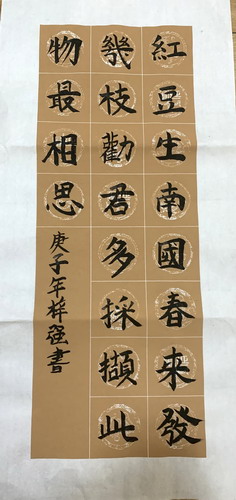 紅豆生南國春來發
幾枝勸君多採擷此
物最相思
庚子年梓强書